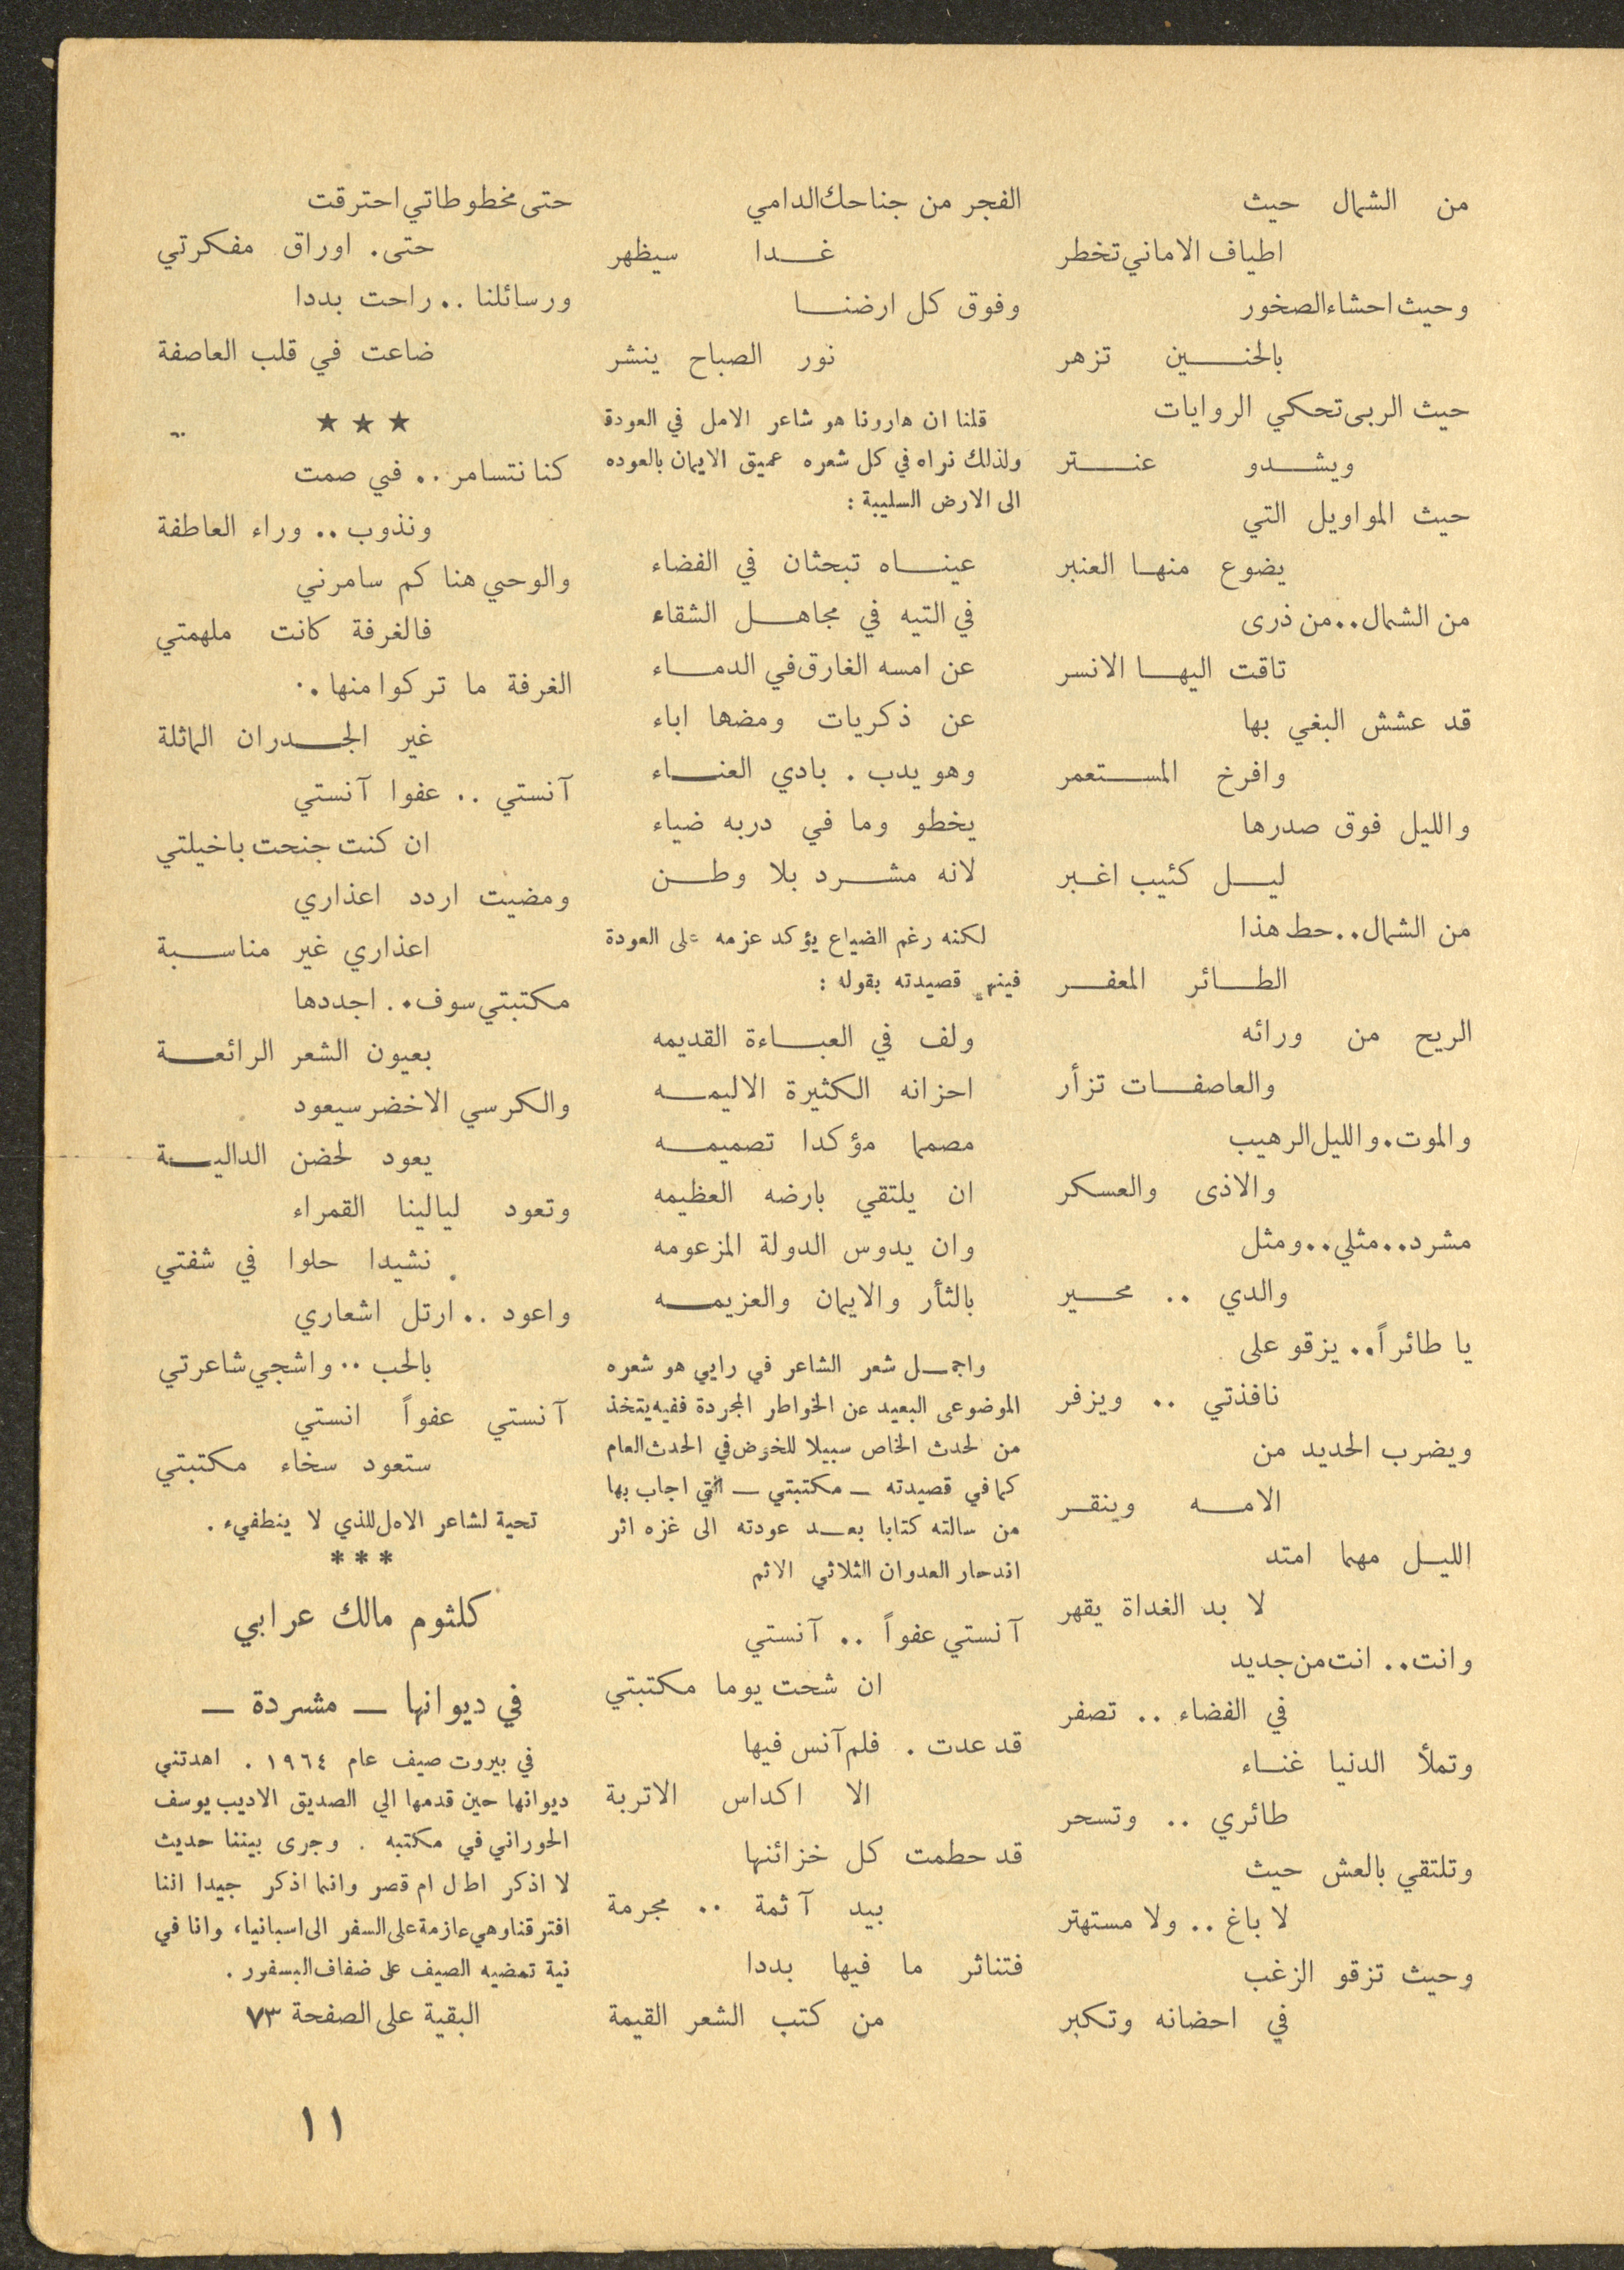 من الشمال حيث
اطياف الاماني تخطر
وحيث احشاء الصخور
بالحنين تزهر
حيث الربى تحكي الروايات
ويشدو عنتر
حيث المواويل التي
يضوع منها العنبر
من الشمال.. من ذرى
تاقت اليها الانسر
قد عشش البغي بها
وافرخ المستعمر
والليل فوق صدرها
ليل كئيب اغبر
من الشمال.. حط هذا
الطائر المعفر
الريح من ورائه
والعاصفات تزأر
والموت. والليل الرهيب
والاذى والعسكر
مشرد.. مثلي.. ومثل
والدي .. محير
يا طائراً.. يزقو على
نافذتي .. ويزفر
ويضرب الحديد من
الامه وينقر
الليل مهما امتد
لا بد الغداة يقهر
وانت.. انت من جديد
في الفضاء .. تصفر
وتملأ الدنيا غناء
طائري .. وتسحر
وتلتقي بالعش حيث
لا باغ .. ولا مستهتر
وحيث تزقو الزغب
في احضانه وتكبر
الفجر من جناحك الدامي
غدا سيظهر
وفوق كل ارضنا
نور الصباح ينشر
قلنا ان هارونا هو شاعر الامل في العودة
ولذلك نراه في كل شعره عميق الايمان بالعوده
الى الارض السليبة :
عيناه تبحثان في الفضاء
في التيه في مجاهل الشقاء
عن امسه الغارق في الدماء
عن ذكريات ومضها اباء
وهو يدب . بادي العناء
يخطو وما في دربه ضياء
لانه مشرد بلا وطن
لكنه رغم الضياع يؤكد عزمه على العودة
فينهي قصيدته بقوله :
ولف في العباءة القديمه
احزانه الكثيرة الاليمه
مصمما مؤكدا تصميمه
ان يلتقي بارضه العظيمه
وان يدوس الدولة المزعومه
بالثأر والايمان والعزيمه
واجمل شعر الشاعر في رايي هو شعره
الموضوعى البعيد عن الخواطر المجردة ففيه يتخذ
من لحدث الخاص سبيلا للخوض في الحدث العام
كما في قصيدته ــ مكتبتي ــ التي اجاب بها
من سالته كتابا بعد عودته الى غزه اثر
اندحار العدوان الثلاثي الاثم
آنستي عفواً .. آنستي
ان شحت يوما مكتبتي
قد عدت . فلم آنس فيها
الا اكداس الاتربة
قد حطمت كل خزائنها
بيد آثمة .. مجرمة
فتناثر ما فيها بددا
من كتب الشعر القيمة
حتى مخطوطاتي احترقت
حتى. اوراق مفكرتي
ورسائلنا .. راحت بددا
ضاعت في قلب العاصفة
★ ★ ★
كنا نتسامر .. في صمت
ونذوب .. وراء العاطفة
والوحي هنا كم سامرني
فالغرفة كانت ملهمتي
الغرفة ما تركوا منها ..
غير الجدران الماثلة
آنستي .. عفوا آنستي
ان كنت جنحت باخيلتي
ومضيت اردد اعذاري
اعذاري غير مناسبة
مكتبتي سوف .. اجددها
بعيون الشعر الرائعة
والكرسي الاخضر سيعود
يعود لحضن الدالية
وتعود ليالينا القمراء
نشيدا حلوا في شفتي
واعود .. ارتل اشعاري
بالحب .. واشجي شاعرتي
آنستي عفواً انستي
ستعود سخاء مكتبتي
تحية لشاعر الامل للذي لا ينطفيء .
* * *
كلثوم مالك عرابي
في ديوانها ــ مشردة ــ
في بيروت صيف عام ١٩٦٤ . اهدتني
ديوانها حين قدمها الي الصديق الاديب يوسف
الحوراني في مكتبه . وجرى بيننا حديث
لا اذكر اطال ام قصر وانما اذكر جيدا اننا
افترقنا وهي عازمة على السفر الى اسبانياء وانا في
نية تمضيه الصيف على ضفاف البسفور .
البقية على الصفحة ٧٣
١١